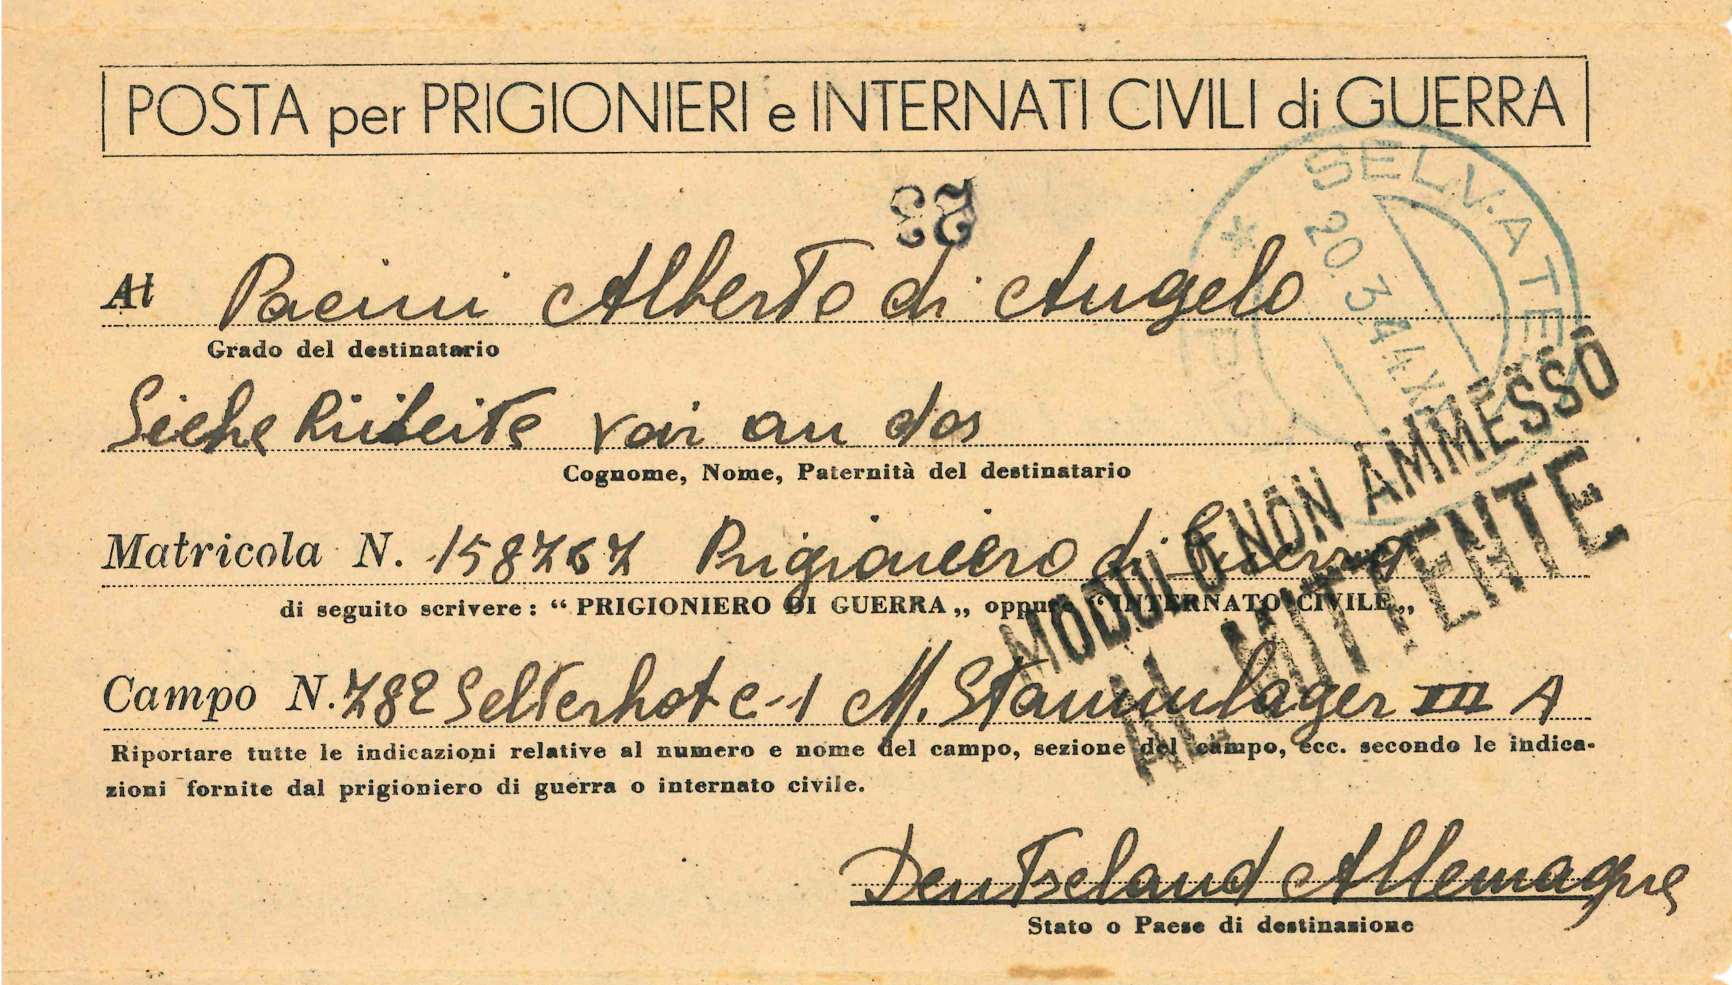 POSTA per PRIGIONIERI e INTERNATI CIVILI di GUERRA
23
SELVATEL
PISA
20.3.44.XX
Al Pacini Alberto di Angelo
Grado del destinatario
Siehe voir au dos
Cognome, Nome, Paternità del destinatario
Matricola N. 158767 Prigioniero di Guerra
di seguito scrivere: “ PRIGIONIERO DI GUERRA „ oppure “INTERNATO CIVILE„
MODULO NON AMMESSO
AL MITTENTE
Campo N. 782 Selterhot C-1 M. Stammlager III A
Riportare tutte le indicazioni relative al numero e nome del campo, sezione del campo, ecc. secondo le indica-
zioni fornite dal prigioniero di guerra o internato civile.
Deutseland Allemagne
Stato o Paese di destinazione